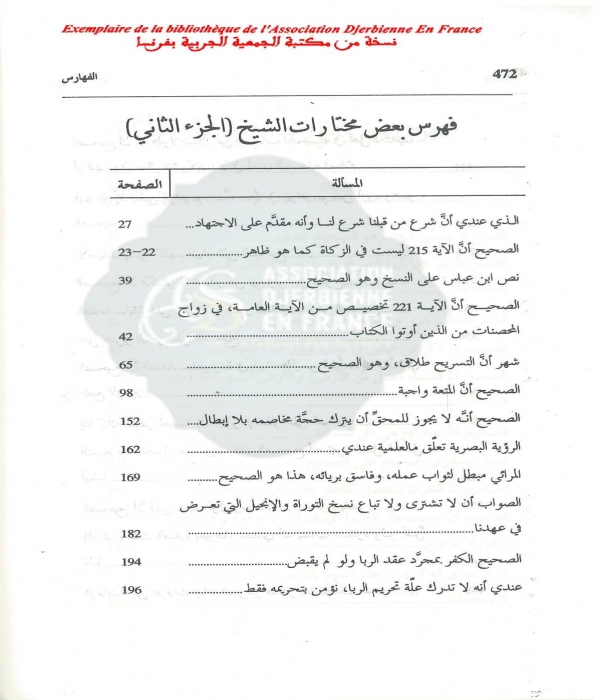 Exemplaire de la bibliothèque de l'Association Djerbienne En France
نسخة من مكتبة الجمعية الجربية بفرنسا
472 الفهارس
فهرس بعض مختارات الشيخ (الجزء الثاني)
المسألة الصفحة
الذي عندي أنَّ شرع من قبلنا شرع لنا وأنه مقدَّم على الاجتهاد... 27
الصحيح أنَّ الآية 215 ليست في الزكاة كما هو ظاهر................ 22–23
نص ابن عباس على النسخ وهو الصحيح................ 39
الصحيـح أنَّ الآية 221 تخصيـص مـن الآيـة العامـة، في زواج
المحصنات من الذين أوتوا الكتاب................ 42
شهر أنَّ التسريح طلاق، وهو الصحيح................ 65
الصحيح أنَّ المتعة واجبة................ 98
الصحيح أنَّـه لا يجوز للمحقِّ أن يترك حجَّة مخاصمه بلا إبطال.... 152
الرؤية البصرية تعلّق مالعلمية عندي................ 162
المرائي مبطل لثواب عمله، وفاسق بريائه، هذا هو الصحيح........ 169
الصواب أن لا تشترى ولا تباع نسخ التوراة والإنجيل التي تعـرض
في عهدنا................ 182
الصحيح الكفر بمجرَّد عقد الربا ولو لم يقبض................ 194
عندي أنه لا تدرك علّة تحريم الربا، نؤمن بتحريمه فقط................ 196
ASSOCIATION
DJERBIENNE
EN FRANCE